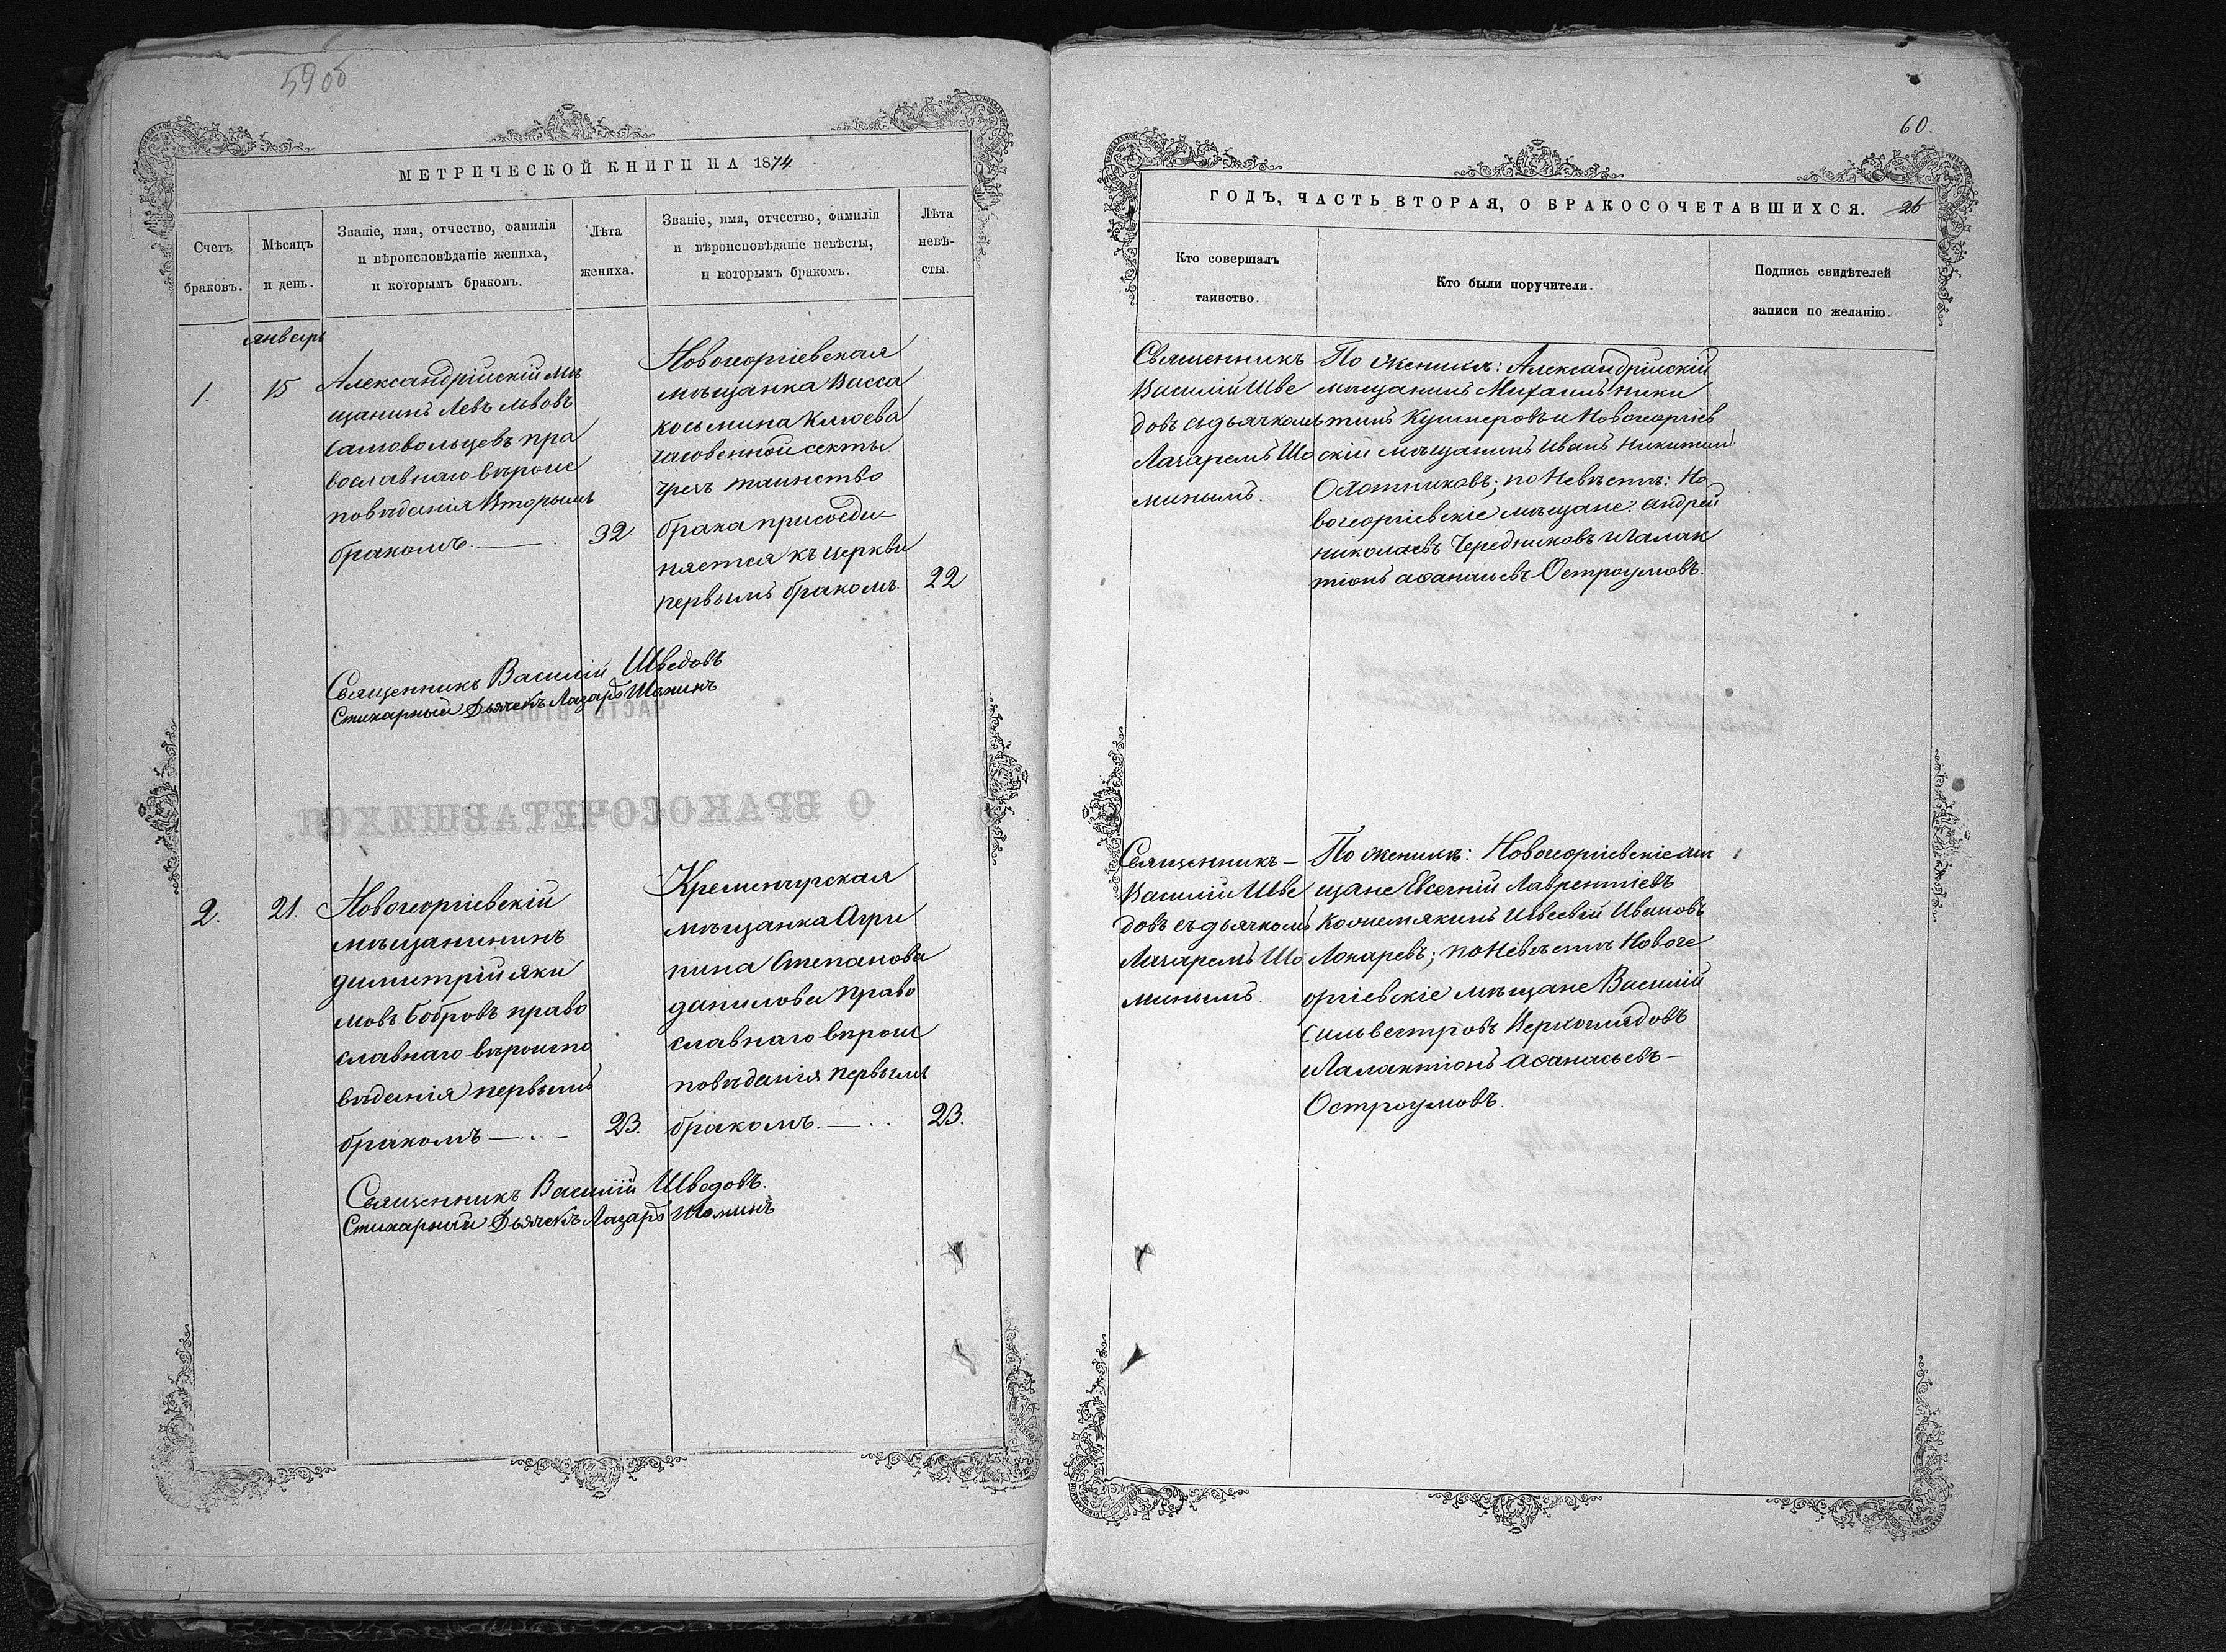 59об
МЕТРИЧЕСКОЙ КНИГИ НА 1874
Счетъ браковъ.
Мѣсяцъ и день.
Званіе, имя, отчество, фамилія и вѣроисповѣданіе жениха, и которымъ бракомъ.
Лѣта жениха.
Званіе, имя, отчество, фамилія и вѣроисповѣданіе невѣсты, и которымъ бракомъ.
Лѣта невѣ-
сты.
январь
1.
15
Александрійскій мѣ
щанинъ Левъ Львовъ
Самовольцевъ пра
вославнаго вѣроис
повѣданія Вторымъ
бракомъ.
32.
Новогеоргіевская
мѣщанка Васса
косьмина Клюева
часовенной секты
чрезъ таинство
брака присоеди-
няется къ церкви
первымъ бракомъ.
22
Священникъ Василій Шведовъ
Стихарный Дьячекъ Лазарь Шоминъ
ЧАСТЬ ВТОРАЯ
О БРАКОСОЧЕТАВШИХСЯ.
2.
21.
Новогеоргіевскій
мѣщанининъ
димитрій яки
мовъ Бобровъ право
славнаго вѣроиспо
вѣданія первымъ
бракомъ
23.
Кременчугская
мѣщанка Агри
пина Степанова
данилова право
славнаго вѣроис
повѣданія первымъ
бракомъ.
23.
Священникъ Василій Шведовъ.
Стихарный Дьячекъ Лазарь Шоминъ
60.
ГОДЪ, ЧАСТЬ ВТОРАЯ, О БРАКОСОЧЕТАВШИХСЯ.
26
Кто совершалъ таинство.
Кто были поручители.
Подпись свидѣтелей записи по желанію.
Священникъ
Василій Шве
довъ съ дьячкомъ
Лазаремъ Шо
минымъ.
По женихѣ: Александрійскій
мѣщанинъ Михаилъ Ники
тинъ Кушнеровъ и Новогеоргіев
скій мѣщанинъ Иванъ Никитинъ
Охотниковъ; по Невѣстѣ: Но
вогеоргіевскіе мѣщане: андрей
николаевъ Чередниковъ и Галак
тіонъ аѳанасьевъ Остроумовъ.
Священникъ –
Василій Шве
довъ съ дьячкомъ
Лазаремъ Шо
минымъ.
По женихѣ: Новогеоргіевскіе мѣ
щане Евгеній Лаврентіевъ
Кожемякинъ и Евсевій Ивановъ
Локаревъ; по Невѣстѣ Новоге
оргіевскіе мѣщане Василій
Сильвестровъ Верхоглядовъ
и Галактіонъ Аѳанасьевъ –
Остроумовъ.